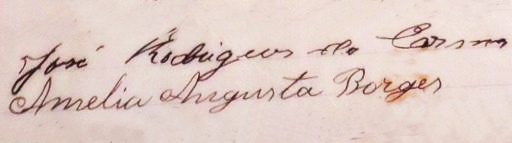 José Rodrigues do Carmo
Amelia Augusta Borges